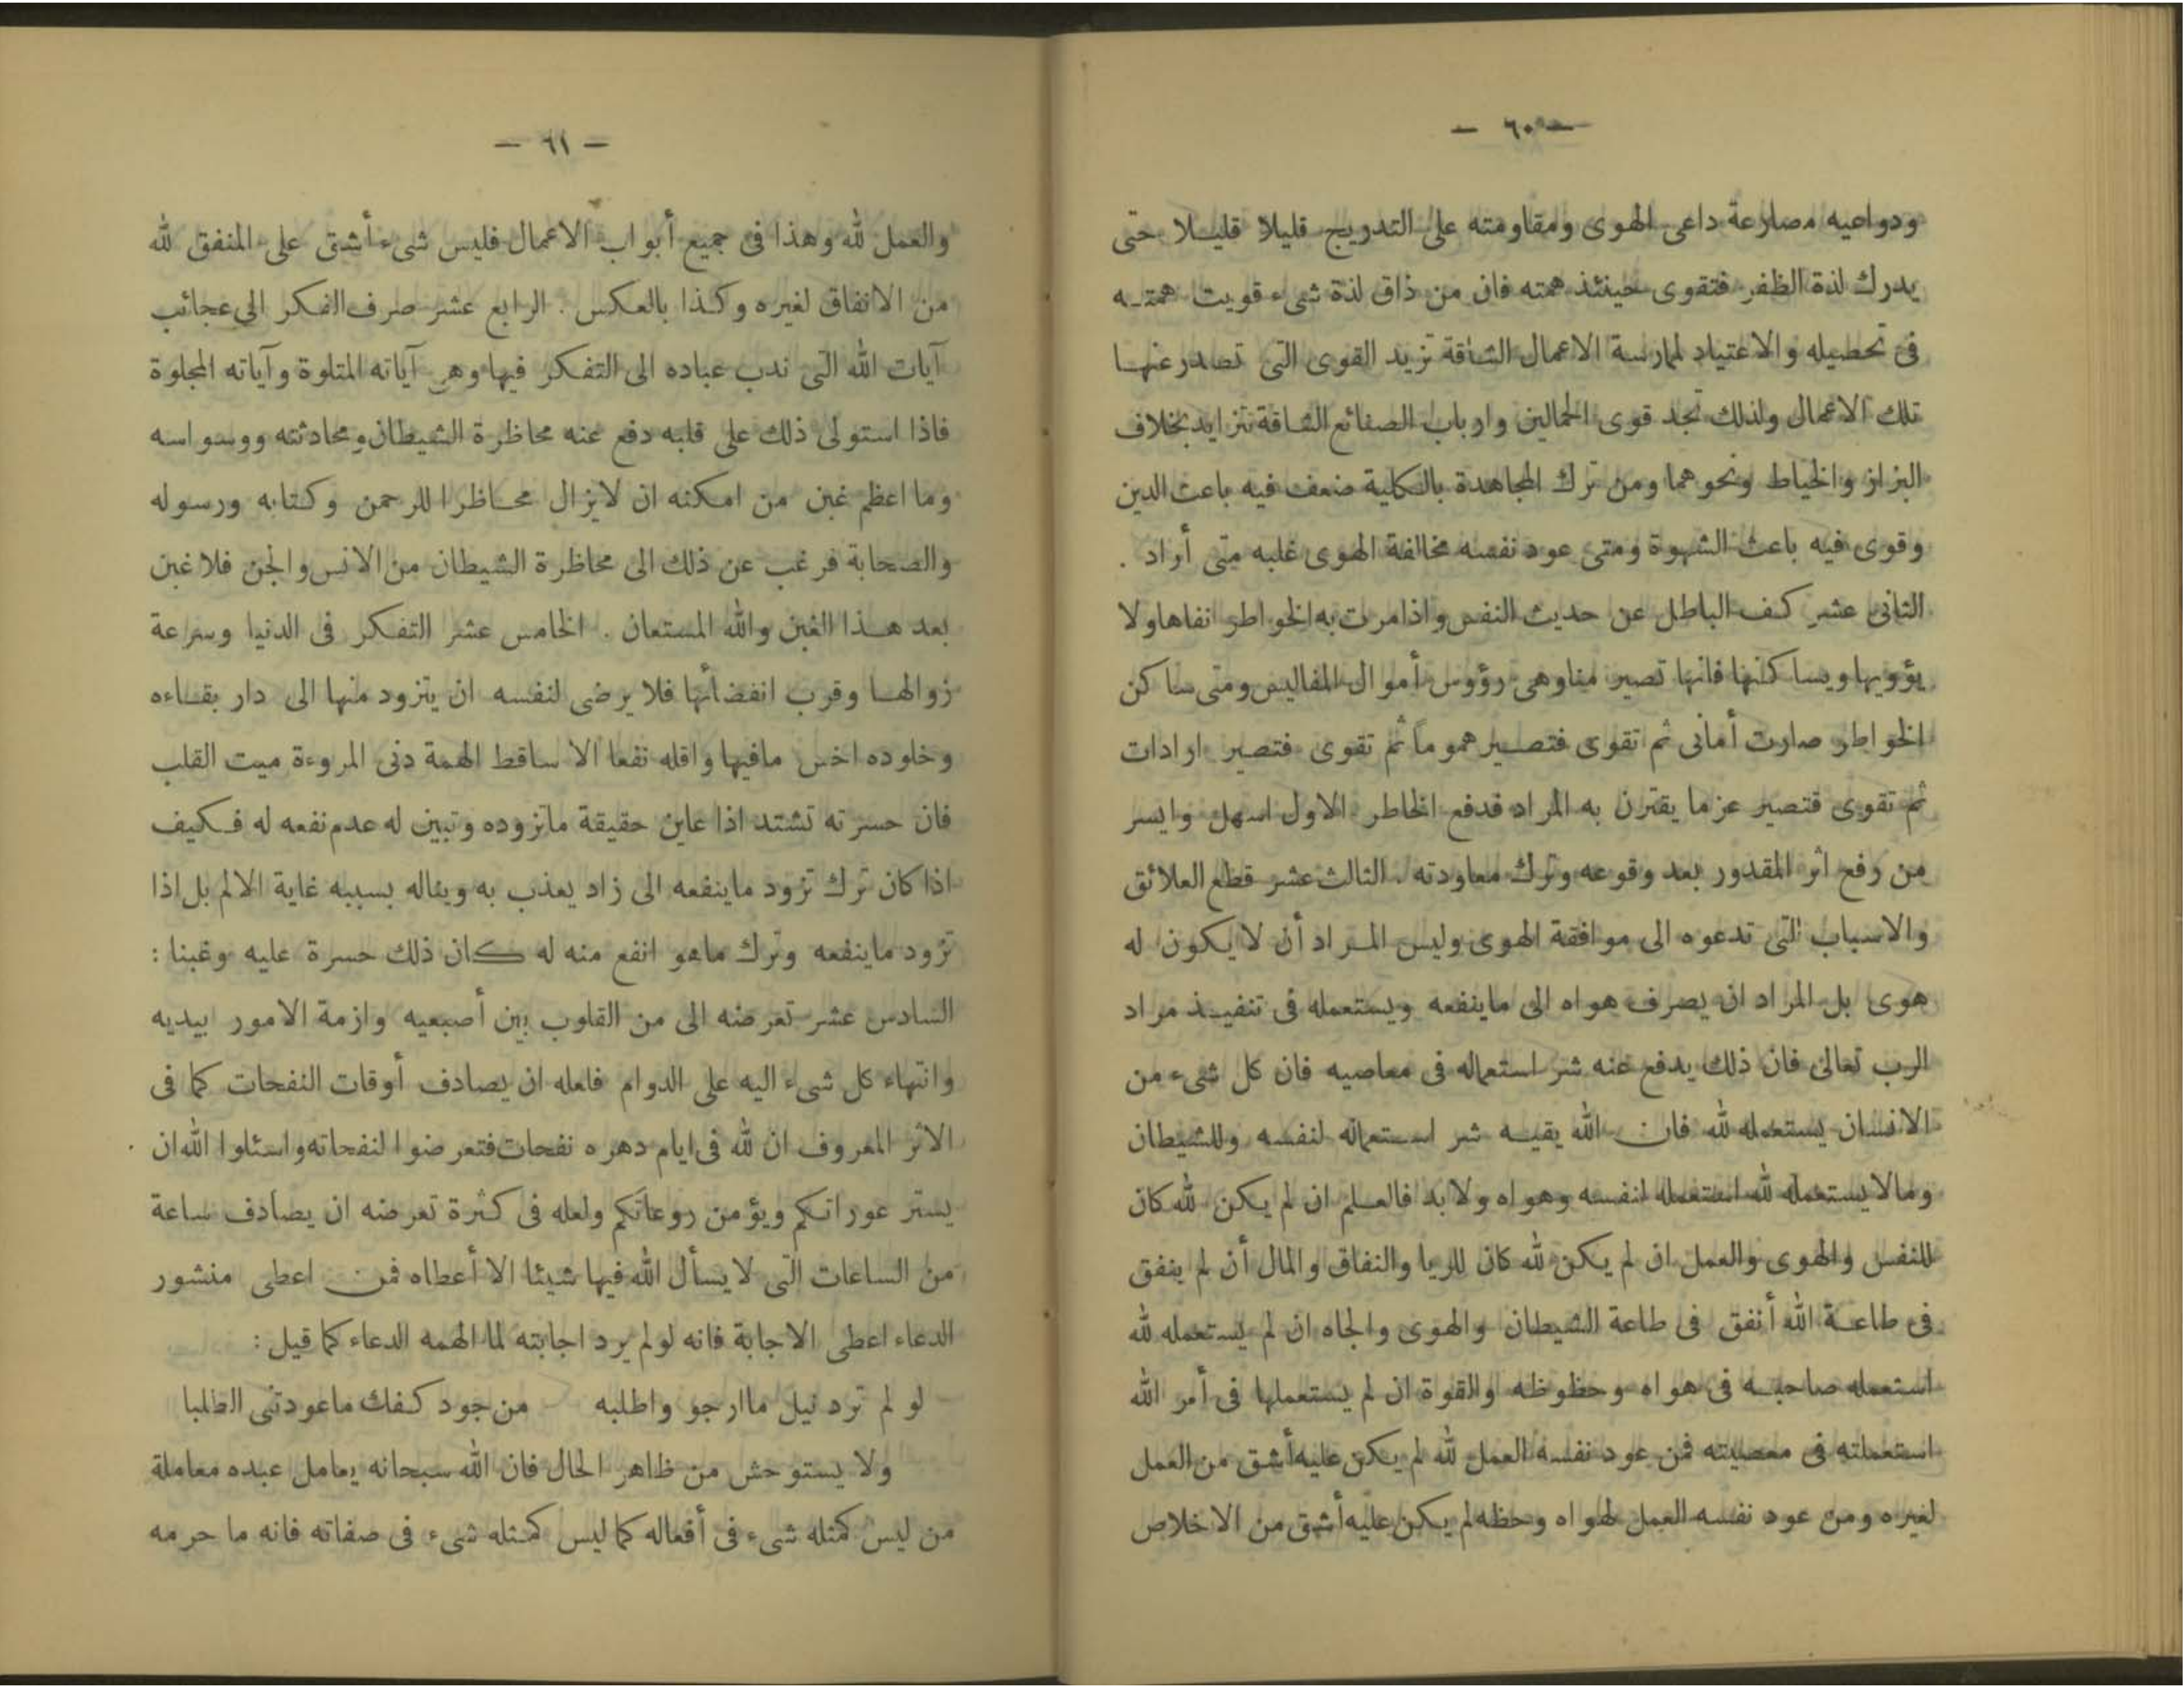 — ٦٠ —
ودواعيه مصارعة داعى الهوى ومقاومته على التدريج قليلا قليـلا حتى
يدرك لذة الظفر فتقوى حينئذ همته فان من ذاق لذة شىء قويت همتـه
فى تحصيله والاعتياد لممارسة الاعمال الشاقة تزيد القوى التى تصدر عنهـا
تلك الاعمال ولذلك تجد قوى الحمالين وارباب الصنائع الشاقة تتزايد بخلاف
البزاز والخياط ونحوهما ومن ترك المجاهدة بالكلية ضعف فيه باعث الدين
وقوى فيه باعث الشهوة ومتى عود نفسه مخالفة الهوى غلبه متى أراد .
الثانى عشر كف الباطل عن حديث النفس واذا مرت به الخواطر انفاها ولا
يؤويها ويساكنها فانها تصير منا وهى رؤوس أموال المفاليس ومتى ساكن
الخواطر صارت أمانى ثم تقوى فتصـير هموماً ثم تقوى فتصير ارادات
ثم تقوى فتصير عزما يقترن به المراد فدفع الخاطر الاول اسهل وايسر
من رفع اثر المقدور بعد وقوعه وترك معاودته . الثالث عشر قطع العلائق
والاسباب التى تدعوه الى موافقة الهوى وليس المـراد أن لا يكون له
هوى بل المراد ان يصرف هواه الى ماينفعه ويستعمله فى تنفيـذ مراد
الرب تعالى فان ذلك يدفع عنه شر استعماله فى معاصيه فان كل شىء من
الانسان يستعمله لله فان الله يقيـه شر استعماله لنفسه وللشيطان
ومالا يستعمله لله استعمله لنفسه وهواه ولا بد فالعـلم ان لم يكن لله كان
للنفس والهوى والعمل ان لم يكن لله كان للريا والنفاق والمال أن لم ينفق
فى طاعـة الله أنفق فى طاعة الشيطان والهوى والجاه ان لم يستعمله لله
استعمله صاحبـه فى هواه وحظوظه والقوة ان لم يستعملها فى أمر الله
استعملته فى معصيته فمن عود نفسه العمل لله لم يكن عليه أشق من العمل
لغيره ومن عود نفسه العمل لهواه وحظه لم يكن عليه أشق من الاخلاص
— ٦١ —
والعمل لله وهذا فى جميع أبواب الاعمال فليس شىء أشق على المنفق لله
من الانفاق لغيره وكـذا بالعكس . الرابع عشر صرف الفكر الى عجائب
آيات الله التى ندب عباده الى التفكر فيها وهى آياته المتلوة وآياته المجلوة
فاذا استولى ذلك على قلبه دفع عنه محاظرة الشيطان ومحادثته ووسواسه
وما اعظم غبن من امكنه ان لايزال محـاظرا للرحمن وكتابه ورسوله
والصحابة فرغب عن ذلك الى محاظرة الشيطان من الانس والجن فلا غبن
بعد هـذا الغبن والله المستعان . الخامس عشر التفكر فى الدنيا وسرعة
زوالهـا وقرب انقضائها فلا يرضى لنفسه ان يتزود منها الى دار بقـاءه
وخلوده اخس مافيها واقله نفعا الا ساقط الهمة دنى المروءة ميت القلب
فان حسرته تشتد اذا عاين حقيقة ماتزوده وتبين له عدم نفعه له فـكيف
اذا كان ترك تزود ماينفعه الى زاد يعذب به ويناله بسببه غاية الالم بل اذا
تزود ماينفعه وترك ماهو انفع منه له كان ذلك حسرة عليه وغبنا :
السادس عشر تعرضه الى من القلوب بين أصبعيه وازمة الامور بيديه
وانتهاء كل شىء اليه على الدوام فلعله ان يصادف أوقات النفحات كما فى
الاثر المعروف ان لله فى ايام دهره نفحات فتعرضوا لنفحاته واسئلوا الله ان
يستر عوراتكم ويؤمن روعاتكم ولعله فى كثرة تعرضه ان يصادف ساعة
من الساعات التى لا يسأل الله فيها شيئا الا أعطاه فمن اعطى منشور
الدعاء اعطى الاجابة فانه لو لم يرد اجابته لما الهمه الدعاء كما قيل :
لو لم ترد نيل ماارجو واطلبه من جود كفك ماعودتنى الطلبا
ولا يستوحش من ظاهر الحال فان الله سبحانه يعامل عبده معاملة
من ليس كمثله شىء فى أفعاله كما ليس كمثله شىء فى صفاته فانه ما حرمه